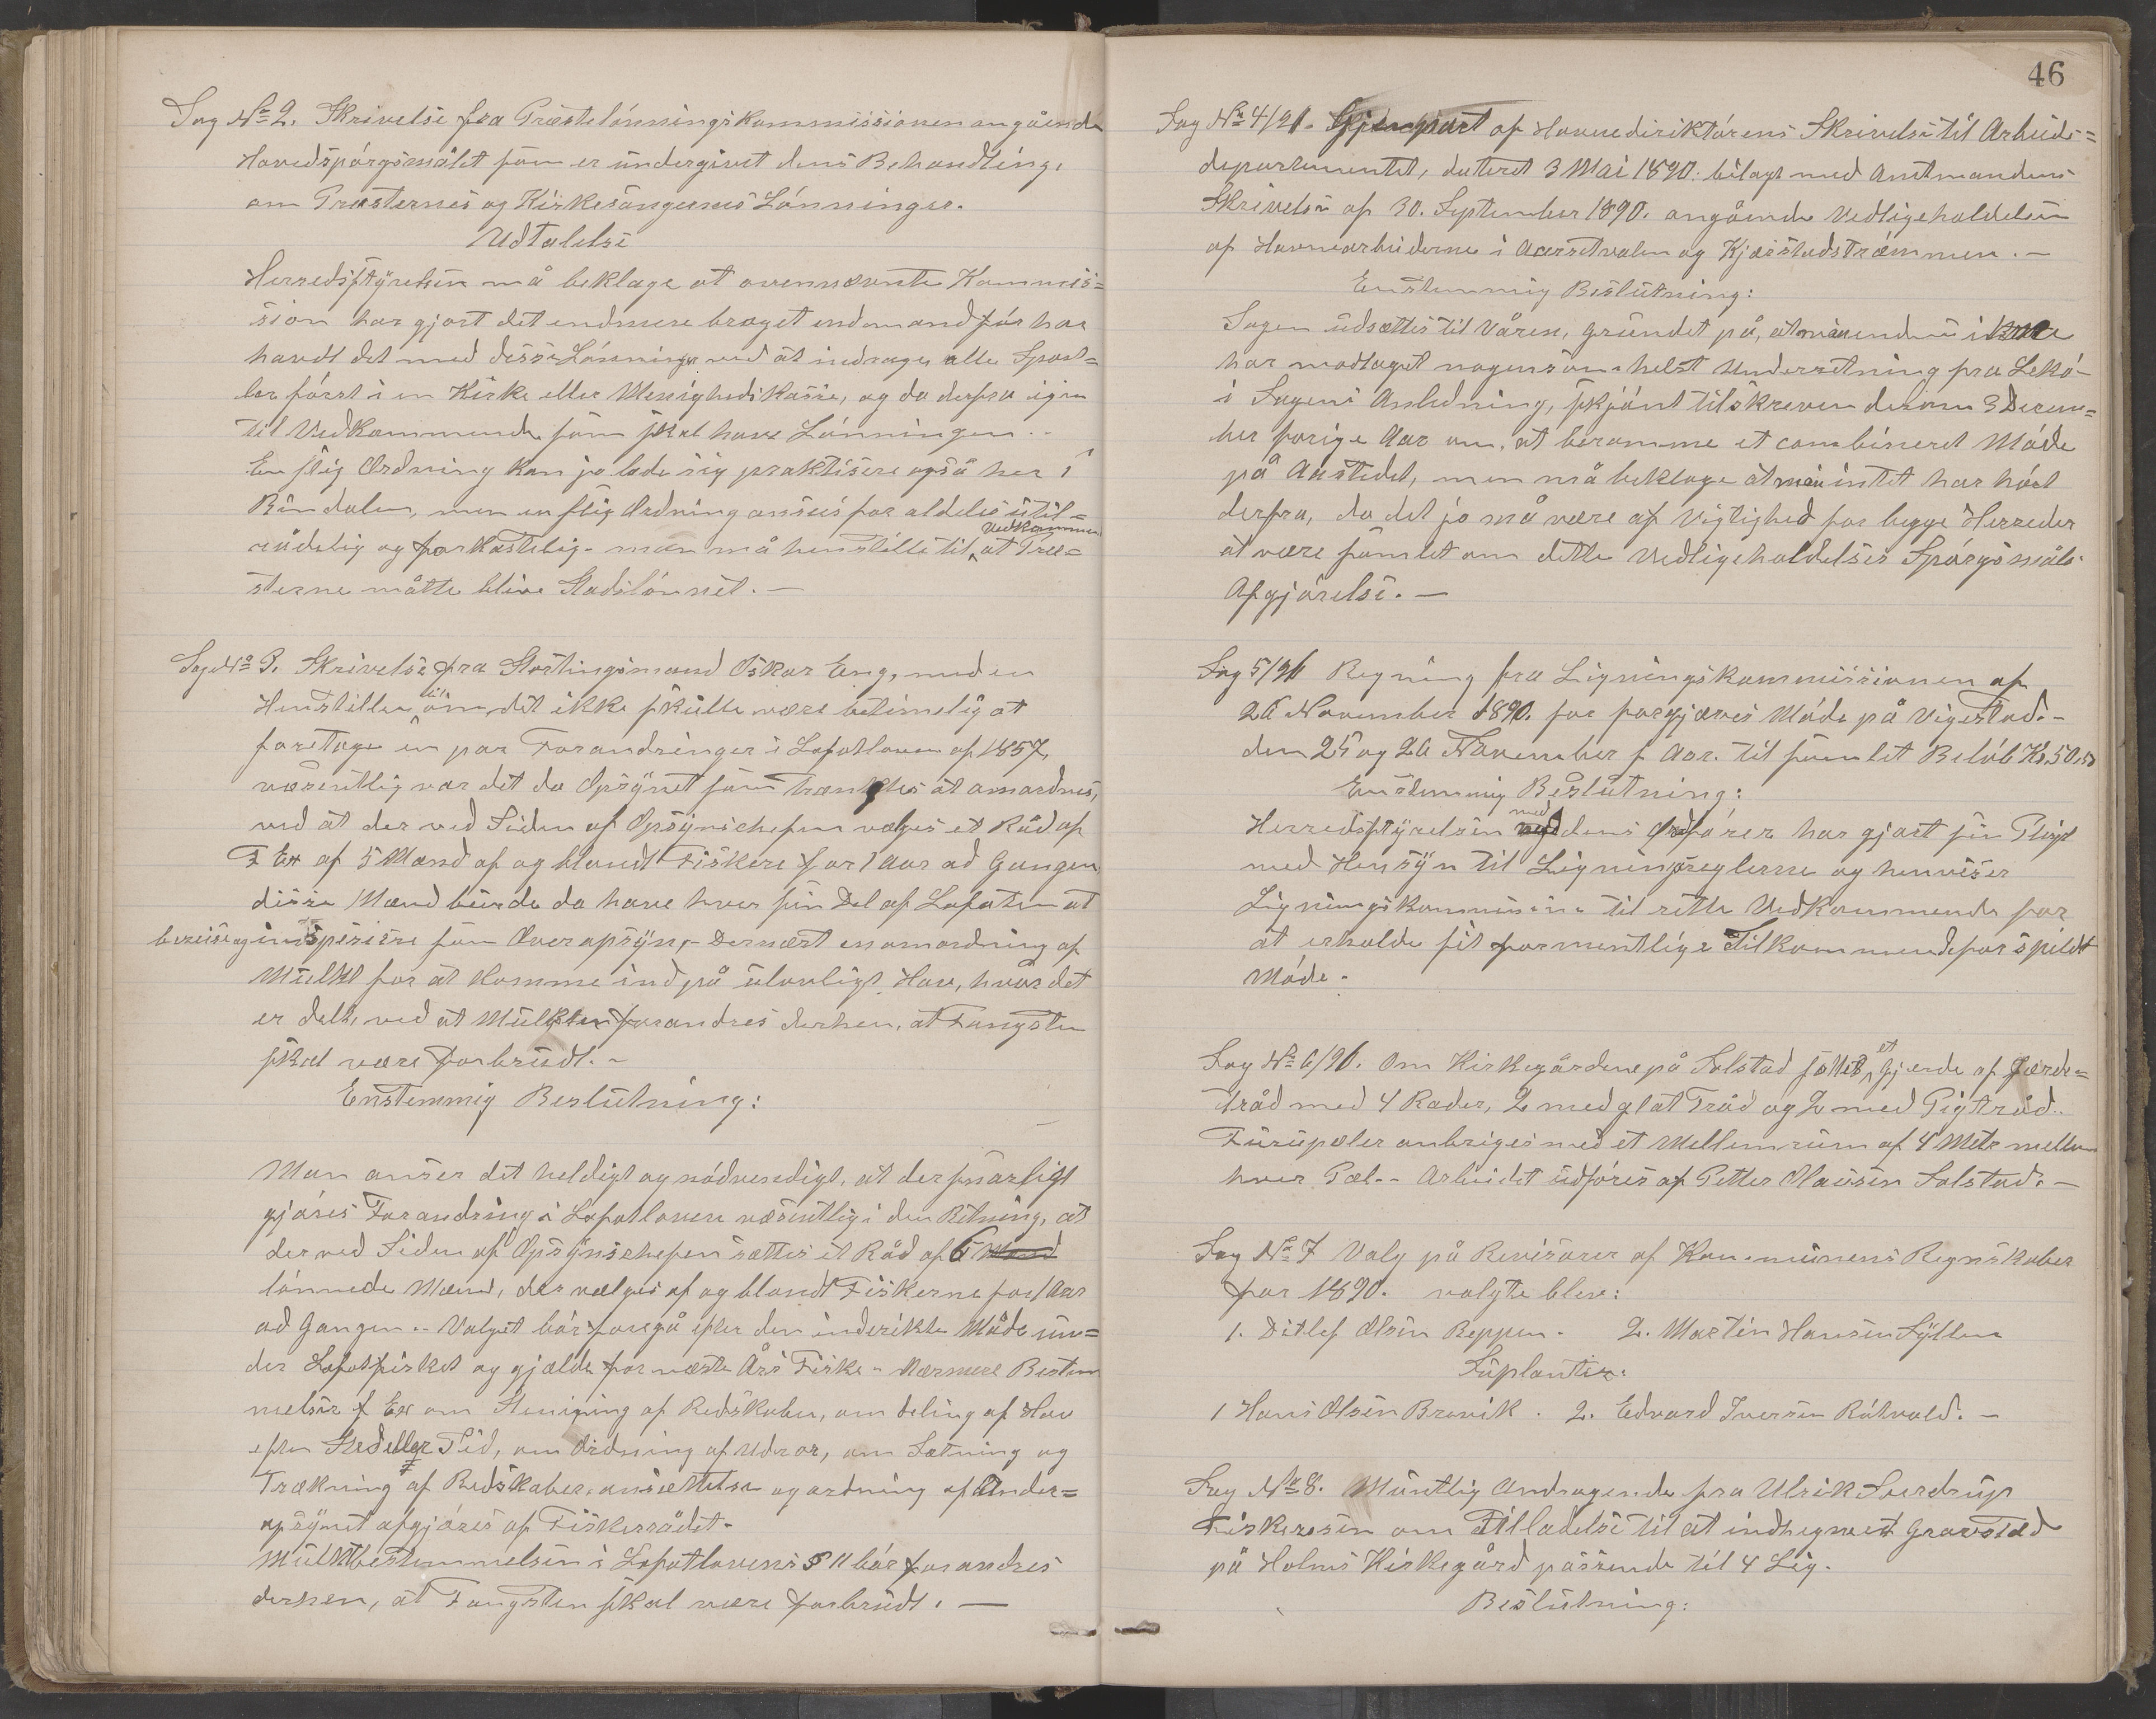 Sag No 2. Skrivelse fra Præstelönningskommissionen angående
Hovedspörgsmålet som er undergivet dens Behandling,
om Præsternes og Kirkesangernes Lönninger.
Udtalelse
Herredsstyrelsen må beklage at ovennævnte Kommis=
sion har gjort det endmere broget end man för har
havdt det med disse Lönninger ved at inddrage alle Sport=
ler först i en Kirke eller Menighedskasse, og da derfra igjen
til Vedkommende som skal have Lönningen. -
En slig Ordning kan jo lade sig praktisere også her i
Bindalen, men en slig Ordning ansees for aldeles util=
rådelig og forkastelig - man må henstille til Vedkommende at Præ=
sterne måtte blive Statslönnet. -
Sag No 3. Skrivelse fra Stortingsmand Oskar Eng, med en
Henstillen til om det ikke skulle være betimelig at
foretage en par Forandringer i Lofotloven af 1857,
væsentlig var det da Opsynet som tænktes at omordnes,
ved at der ved Siden af Opsynschefen vælges et Råd af
F Ex af 5 Mænd af og blandt Fiskere for 1 Aar ad Gangen
disse Mænd burde da have hver sin Del af Lofoten at
bereise og inspisere som Overopsyn, - Dernæst en omordning af
Mulkt for at komme ind på ulovligt Hav, hvor det
er delt, ved at Mulkten forandres derhen, at Fangsten
skal være forbrudt. -
Enstemmig Beslutning:
Man anser det heldigt og nödvendigt, at der snarligt
gjöres Forandring i Lofotloven væsentlig i den Retning, at
der ved Siden af Opsynschefen sættes et Råd af 6 Mænd
lönnede Mænd, der vælges af og blandt Fiskerne for 1 Aar
ad Gangen. - Valget bör foregå efter den inderikte Måde un=
der Lofotfisket og gjælde for næste Års Fiske - Nærmere Bestem
melser f Ex om Steniging af Redskaber, om deling af Hav
efter Sted eller Tid, om Ordning af Udror, om Sætning og
Trækning af Redskaber, ansættelse og ordning af Under=
opsynet afgjöres af Fiskerrådet -
Mulktbestemmelsen i Lofotlovens § 11 bör forandres
derhen, at Fangsten skal være forbrudt. -
46
Sag Nr 4/91. Gjenpart af Havnedirektörens Skrivelse til Arbeids=
departementet, dateret 3 Mai 1890. bilagt med Amtmandens
Skrivelse af 30. September 1890. angående Vedligeholdelsen
af Havnearbeiderne i Aarsetvalen og Kjærstadströmmen. -
Enstemmig Beslutning:
Sagen udsættes til Våren, grundet på, at man endnu ikke
har modtaget nogensomhelst Underretning fra Lekö
i Sagens Anledning, skjönt tilskreven derom 3 Decem=
ber forige Aar om, at beramme et combineret Möde
på Austedet, men må beklage at man intet har hört
derfra, da det jo må være af Vigtighed for begge Herreder
at være samlet om dette Vedligeholdelses Spörgsmåls
Afgjörelse. -
Sag 5/91 Regning fra Ligningskommissionen af
26 November 1890. for forgjæves Möde på Vigestad. -
den 25 og 26 November f Aar. til samlet Belöb Kr. 50,50
Enstemmig Beslutning:
Herredsstyrelsen med dens Ordförer har gjort sin Pligt
med Hensyn til Ligningsreglerne og henviser
Ligningskommisionen til rette Vedkommende for
at erholde sit formentlige Tilkommende for spildt
Möde -
Sag No 6/91. Om Kirkegårdene på Solstad sættes et Gjerde af Gjerde=
tråd med 4 Rader, 2 med glat Tråd og 2 med Pigtråd.
Furupæler anbriges med et Mellemrum af 4 Metr mellem
hver Pæl. - Arbeidet udföres af Petter Olausen Solstad. -
Sag No 7 Valg på Revisorer af Kommunens Regnskaber
for 1890. valgte blev:
1. Ditlef Olsen Reppen - 2. Martin Hansen Sylten
Suplanter:
1 Hans Olsen Brevik. 2. Edvard Iversen Råtvold. -
Sag No 8. Muntlig Andragende fra Ulrik Sverdrup
Fiskerosen om Tilladelse til at indhegne et Gravsted
på Holms Kirkegård passende til 4 Lig.
Beslutning: